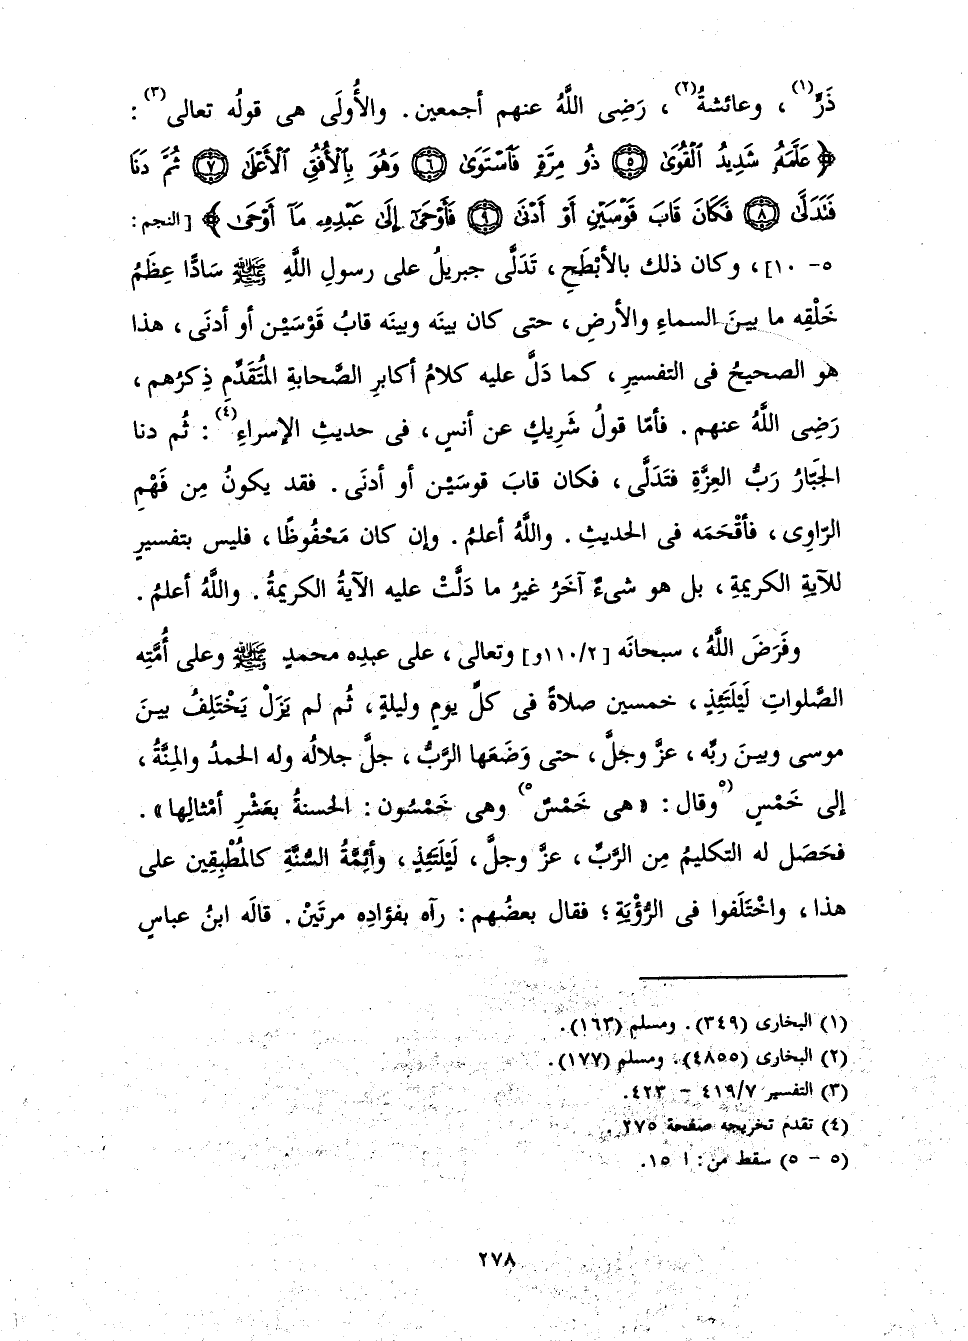 ذَرٍّ(١)، وعائشةُ(٢)، رَضِى اللَّهُ عنهم أجمعين. والأُولَى هى قولُه تعالى(٣):
﴿عَلَّمَهُۥ شَدِيدُ ٱلْقُوَىٰ ۝٥ ذُو مِرَّةٍ فَٱسْتَوَىٰ ۝٦ وَهُوَ بِٱلْأُفُقِ ٱلْأَعْلَىٰ ۝٧ ثُمَّ دَنَا
فَتَدَلَّىٰ ۝٨ فَكَانَ قَابَ قَوْسَيْنِ أَوْ أَدْنَىٰ ۝٩ فَأَوْحَىٰٓ إِلَىٰ عَبْدِهِۦ مَآ أَوْحَىٰ﴾ [النجم:
٥- ١٠]، وكان ذلك بالأبْطَحِ، تَدَلَّى جبريلُ على رسولِ اللَّهِ ﷺ سَادًّا عِظَمُ
خَلْقِه ما بينَ السماءِ والأرضِ، حتى كان بينَه وبينَه قابُ قَوْسَيْن أو أدنَى، هذا
هو الصحيحُ فى التفسيرِ، كما دَلَّ عليه كلامُ أكابرِ الصَّحابةِ المُتَقَدِّمِ ذِكرُهم،
رَضِى اللَّهُ عنهم. فأمّا قولُ شَرِيكٍ عن أنسٍ، فى حديثِ الإسراءِ(٤): ثُم دنا
الجَبّارُ رَبُّ العِزَّةِ فتَدَلَّى، فكان قابَ قوسَيْن أو أدنَى. فقد يكونُ مِن فَهْمِ
الرّاوِى، فأقْحَمَه فى الحديثِ. واللَّهُ أعلمُ. وإن كان مَحْفُوظًا، فليس بتفسيرٍ
للآيةِ الكريمةِ، بل هو شىءٌ آخَرُ غيرُ ما دَلَّتْ عليه الآيةُ الكريمةُ. واللَّهُ أعلمُ.
وفَرَضَ اللَّهُ، سبحانَه [١١٠/٢و] وتعالى، على عبدِه محمدٍ ﷺ وعلى أُمَّتِه
الصَّلواتِ لَيْلَتَئِذٍ، خمسين صلاةً فى كلِّ يومٍ وليلةٍ، ثُم لم يَزَلْ يَخْتَلِفُ بينَ
موسى وبينَ ربِّه، عزَّ وجلَّ، حتى وَضَعَها الرَّبُّ، جلَّ جلالُه وله الحمدُ والمِنَّةُ،
إلى خَمْسٍ (٥وقال: «هى خَمْسٌ٥) وهى خَمْسُون: الحسنةُ بعَشْرِ أمْثالِها».
فحَصَل له التكليمُ مِن الرَّبِّ، عزَّ وجلَّ، لَيْلَتَئِذٍ، وأئِمَّةُ السُّنَّةِ كالمُطْبِقِين على
هذا، واخْتَلَفوا فى الرُّؤْيَةِ؛ فقال بعضُهم: رآه بفؤادِه مرتَيْن. قالَه ابنُ عباسٍ
(١) البخارى (٣٤٩). ومسلم (١٦٣).
(٢) البخارى (٤٨٥٥). ومسلم (١٧٧).
(٣) التفسير ٤١٩/٧ - ٤٢٣.
(٤) تقدم تخريجه صفحة ٢٧٥.
(٥ - ٥) سقط من: ا ١٥.
٢٧٨